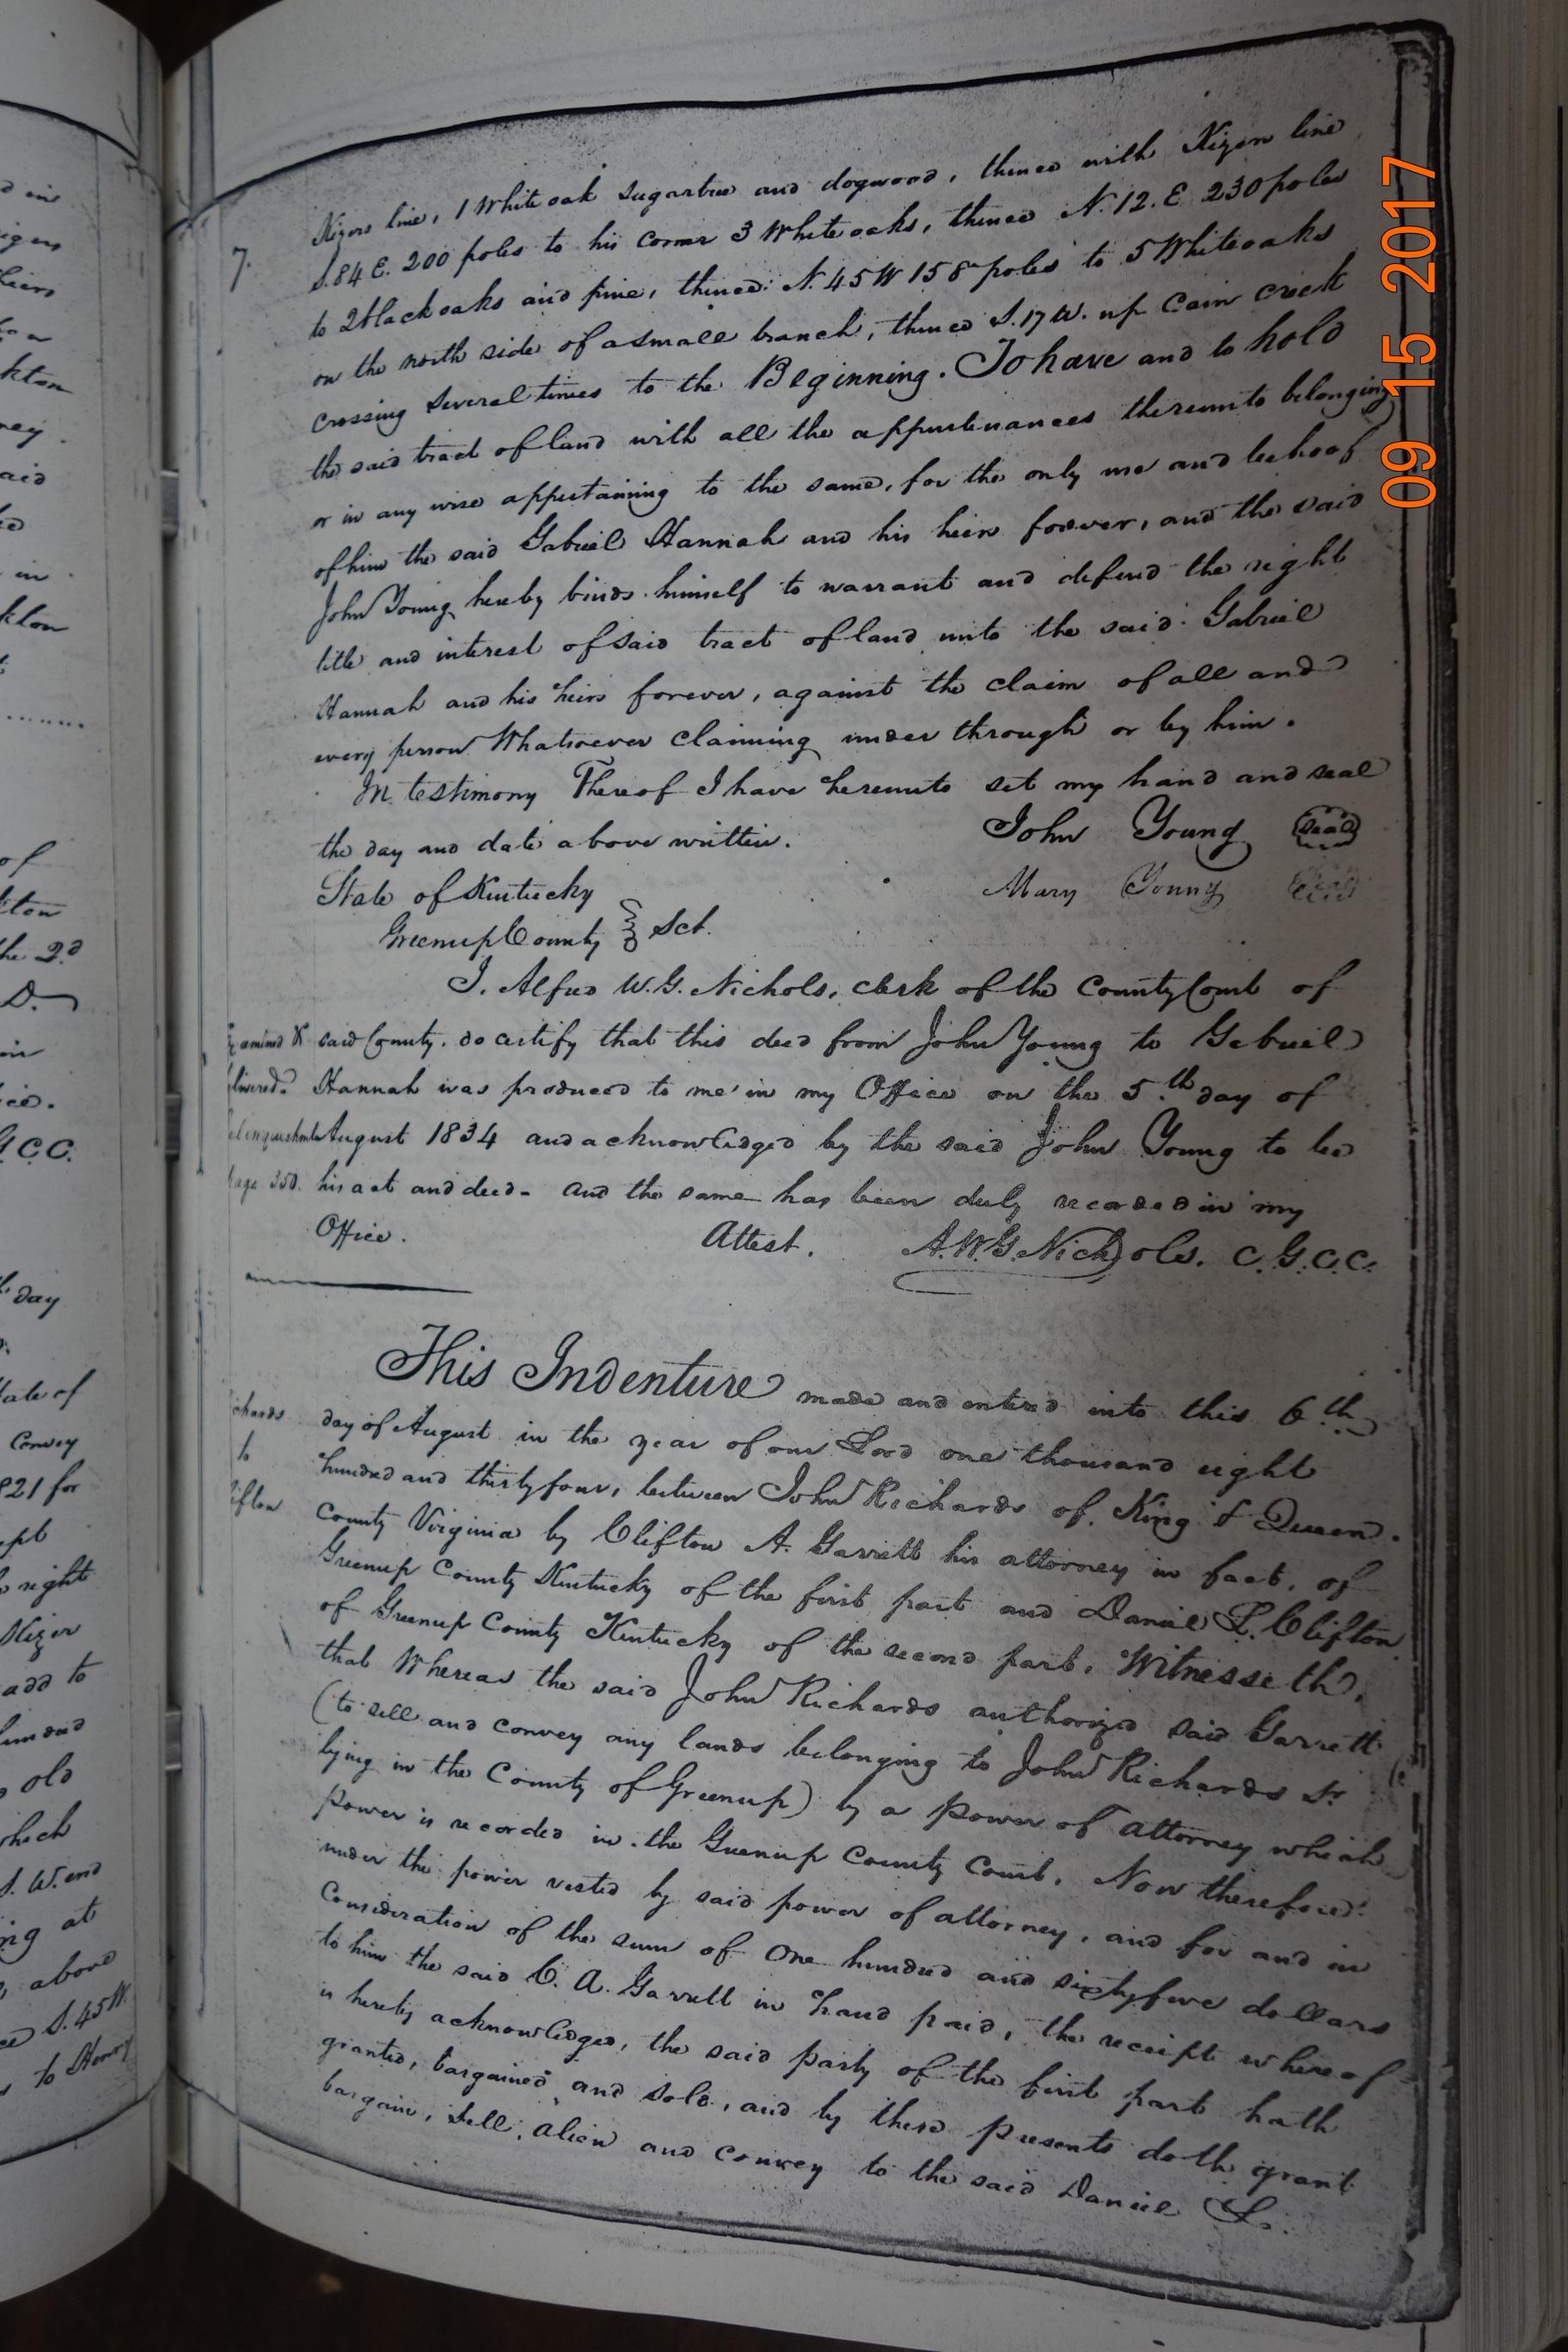 in
heirs
kton
ney.
said
in
klon
of
kton
the 2d
D.
in
ice.
G.C.C.
day
State of
Convey
1821 for
right
Kizer
add to
hundred
old
which
S. W. end
ing at
above
S. 45 W.
to Henry
7.
Kizers line, 1 White oak sugartree and dogwood, thence with Kizers line
S. 84 E. 200 poles to his corner 3 White oaks, thence N. 12. E 230 poles
to 2 black oaks and pine, thence N. 45 W 158 poles to 5 White oaks
on the north side of a small branch, thence S. 17 W. up Cain creek
crossing several times to the Beginning. To have and to hold
the said tract of land with all the appurtenances thereunto belonging
or in any wise appertaining to the same, for the only use and behoof
of him the said Gabriel Hannah and his heirs forever, and the said
John Young hereby binds himself to warrant and defend the right
title and interest of said tract of land unto the said Gabriel
Hannah and his heirs forever, against the claim of all and
every person Whatsoever claiming under through or by him.
In testimony Thereof I have hereunto set my hand and seal
the day and date above written. John Young Seal
Mary Young Seal
State of Kentucky
Greenup County } Sct.
I. Alfred W. G. Nichols, clerk of the County Court of
said County. do certify that this deed from John Young to Gabriel
Hannah was produced to me in my Office on the 5th day of
August 1834 and acknowledged by the said John Young to be
his act and deed - and the same has been duly recorded in my
Office. Attest. A. W. G. Nichols. C. G. C. C.
Examined &
delivered.
relinquishment
page 350.
This Indenture made and entered into this 6th
day of August in the year of our Lord one thousand eight
hundred and thirty four, between John Richards of King & Queen
County Virginia by Clifton A. Garrett his attorney in fact, of
Greenup County Kentucky of the first part and Daniel L. Clifton
of Greenup County Kentucky of the second part, Witnesseth,
that Whereas the said John Richards authorized said Garrett
(to sell and convey any lands belonging to John Richards Sr
lying in the County of Greenup) by a power of attorney which
power is recorded in the Greenup County Court. Now therefore
under the power vested by said power of attorney, and for and in
Consideration of the sum of One hundred and sixty five dollars
to him the said C. A. Garrett in hand paid, the receipt whereof
is hereby acknowledged, the said party of the first part hath
granted, bargained and sold, and by these presents doth grant
bargain, sell, alien and convey to the said Daniel L.
Richards
to
Clifton
09 15 2017